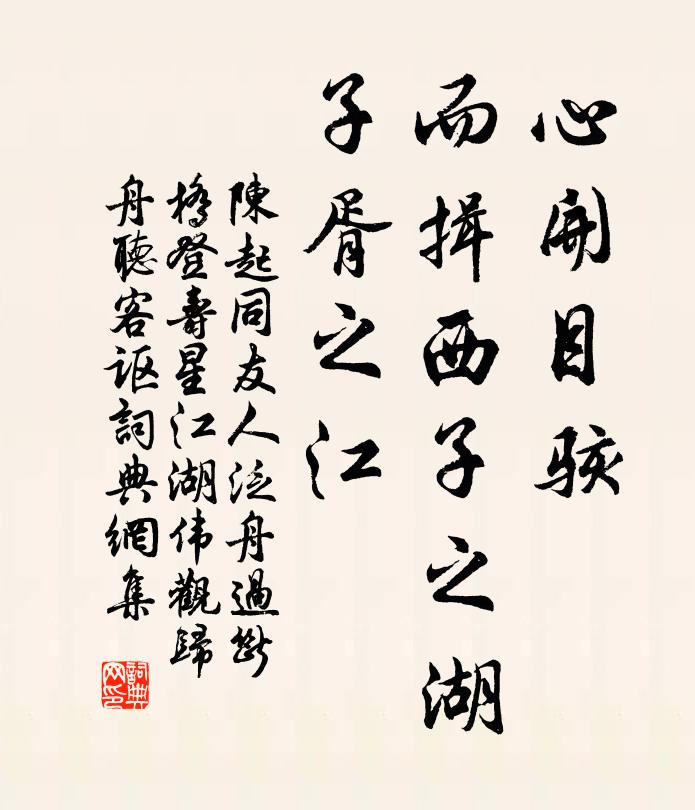 心開目骇
而揖西子之湖
子胥之江
陳起同友人泛舟過斷
橋登壽星江湖伟觀歸
舟聽客讴詞典網集
詞典
网印